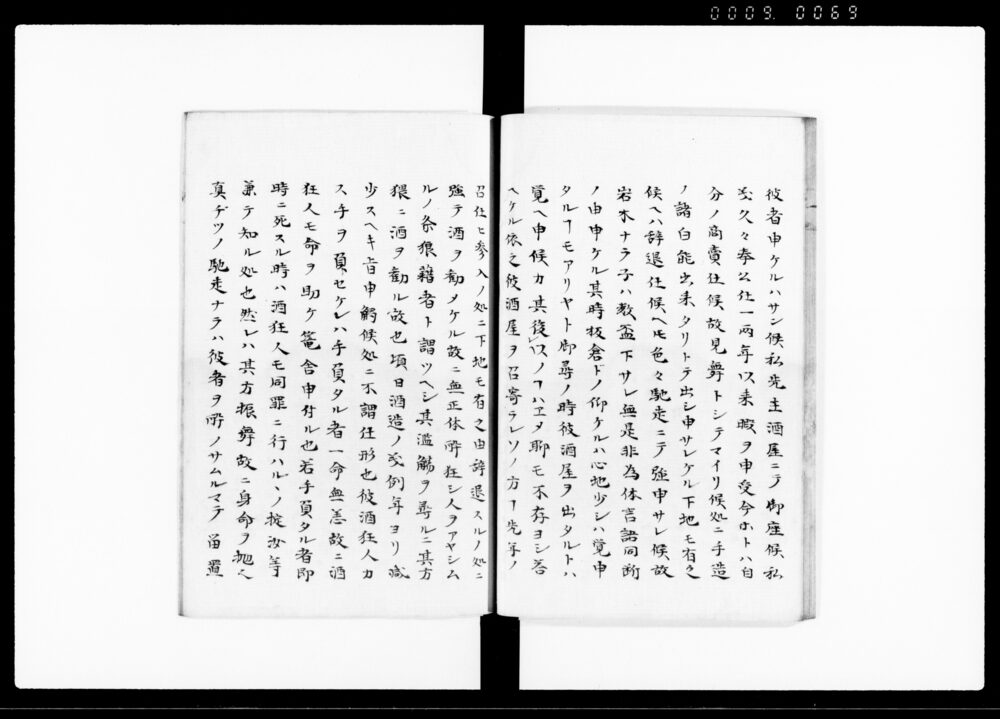 0009. 0069
彼者申ケルハサン候私先主酒屋ニテ御座候私
義久々奉公仕一両年以来暇ヲ申受今ホトハ自
分ノ商賣仕候故見舞トシテマイリ候処ニ手造
ノ諸白能出来タリトテ出シ申サレケル下地モ有之
候ヘハ辞退仕候ヘ𪜈色々馳走ニテ強申サレ候故
岩木ナラ子ハ数盃下サレ無是非為体言語同断
ノ由申ケル其時板倉トノ仰ケルハ心地少シハ覚申
タルヿモアリヤト御尋ノ時彼酒屋ヲ出タルトハ
覚ヘ申候カ其後以ノヿハヱタ聊モ不存ヨシ答
ヘケル依之彼酒屋ヲ召寄ラレソノ方ヿ先年ノ
召仕ヒ参入ノ処ニ下地モ有之由辞退スルノ処ニ
強テ酒ヲ勧メケル故ニ無正体酔狂シ人ヲアヤシム
ルノ条狼藉者ト謂ツヘシ其濫觴ヲ尋ルニ其方
猥ニ酒ヲ勧ル故也頃日酒造ノ義例年ヨリ減
少スヘキ旨申觸候処ニ不謂仕形也彼酒狂人カ
ス手ヲ負セケレハ手負タル者一命無恙故ニ酒
狂人モ命ヲ助ケ篭舎申付ル也若手負タル者即
時ニ死スル時ハ酒狂人モ同罪ニ行ハルヽノ掟汝等
兼テ知ル処也然レハ其方振舞故ニ身命ヲ抛ヘ
真ヂツノ馳走ナラハ彼者ヲ酔ノサムルマテ留置